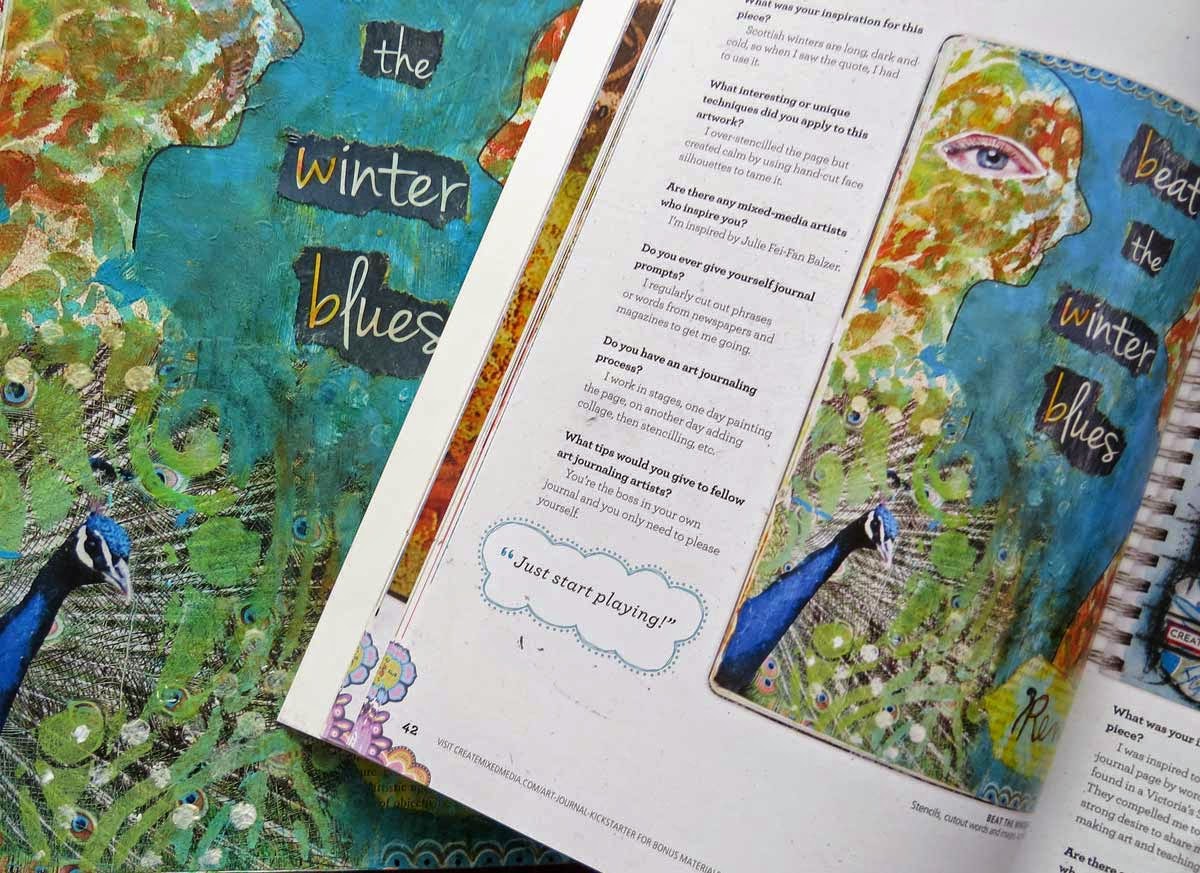 the
winter
blues
What was your inspiration for this
piece?
Scottish winters are long, dark and
cold, so when I saw the quote, I had
to use it.
What interesting or unique
techniques did you apply to this
artwork?
I over-stencilled the page but
created calm by using hand-cut face
silhouettes to tame it.
Are there any mixed-media artists
who inspire you?
I'm inspired by Julie Fei-Fan Balzer.
Do you ever give yourself journal
prompts?
I regularly cut out phrases
or words from newspapers and
magazines to get me going.
Do you have an art journaling
process?
I work in stages, one day painting
the page, on another day adding
collage, then stencilling, etc.
What tips would you give to fellow
art journaling artists?
You're the boss in your own
journal and you only need to please
yourself.
“Just start playing!”
42
VISIT CREATEMIXEDMEDIA.COM/ART-JOURNAL-KICKSTARTER FOR BONUS MATERIAL
beat
the
winter
blues
BEAT THE
Stencils, cutout words and
CREAT
What was your i
piece?
I was inspired to
journal page by wor
found in a Victoria's
They compelled me
strong desire to share
making art and teaching
Are there
of objecti